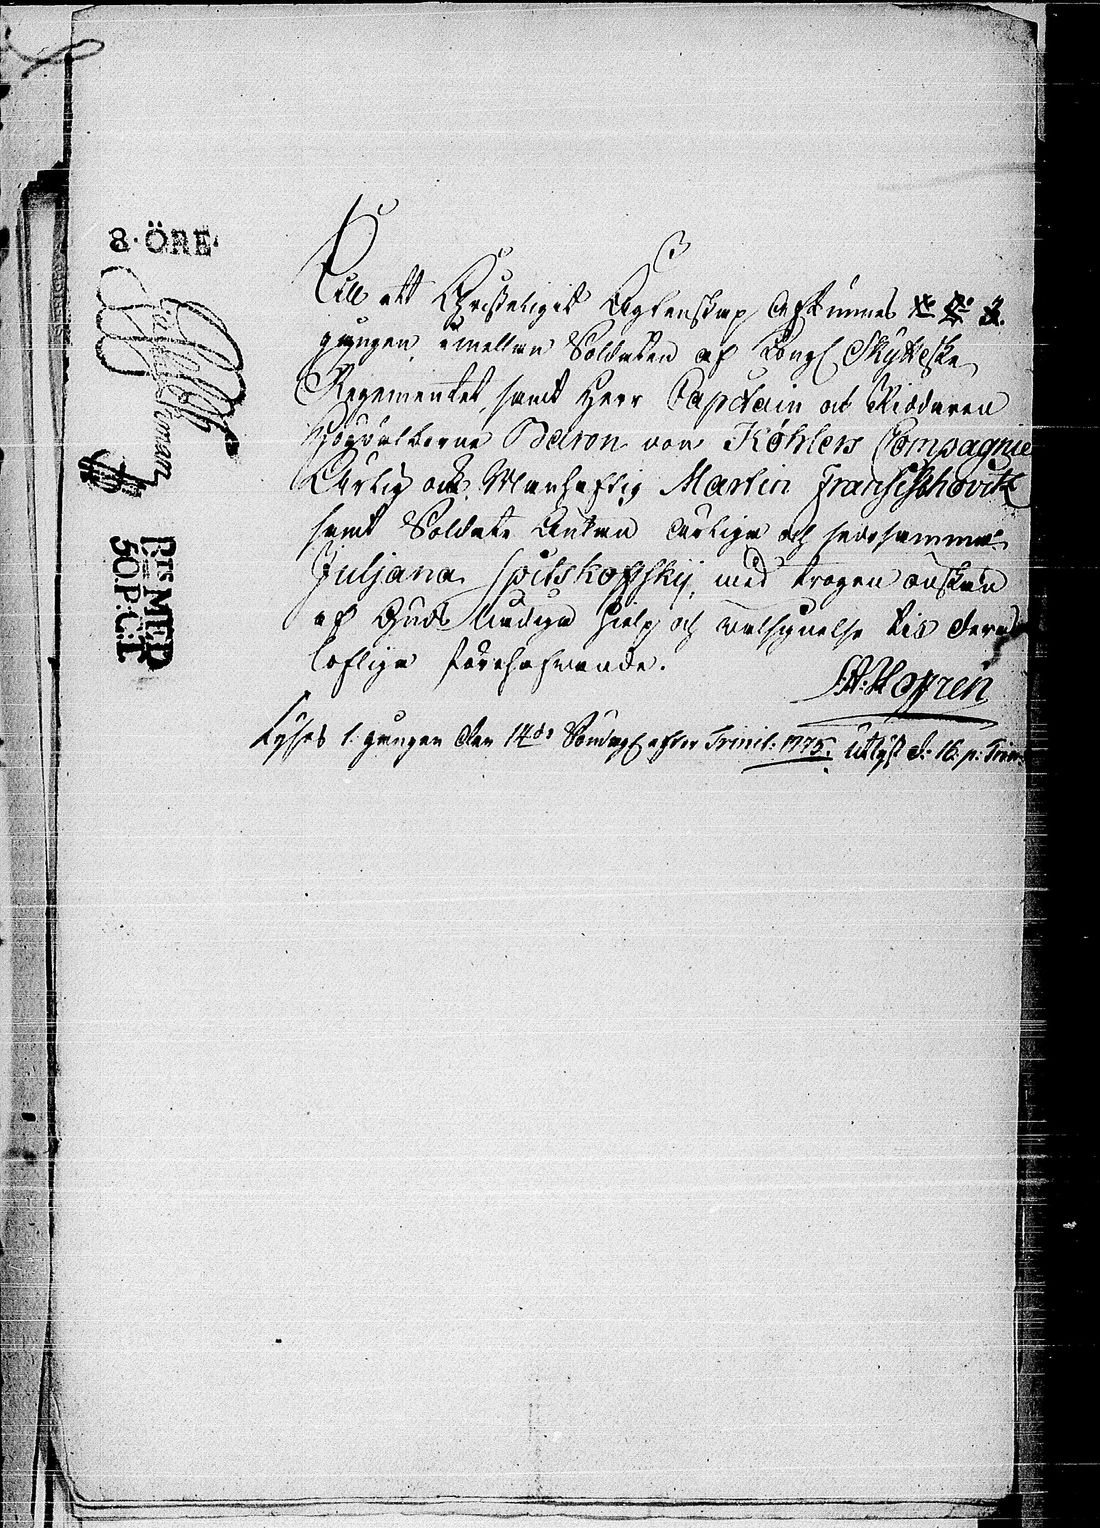 8·ÖRE·
Bts MED
50.P:C:T
Till ett Christeligit Ägtenskap afkunnes
gången emellan Soldaten af Kongl Skÿtteske
Regementet, samt Herr Captain och Riddaren
Högvälborne Baron von Köhlers Compagnie
Ährlig och Manhaftig Martin Franschovitz
samt Soldate Änkan ährliga och sedesamma
Juljana Spitskoffskij, med trogen önskan
af Guds nådiga hielp och välsignelse till deras
loflige förehafvande.
Hoffren
Lystes 1. gången den 14de Söndag efter Trinit: 1775. Utlyst d: 16. p: Trin: